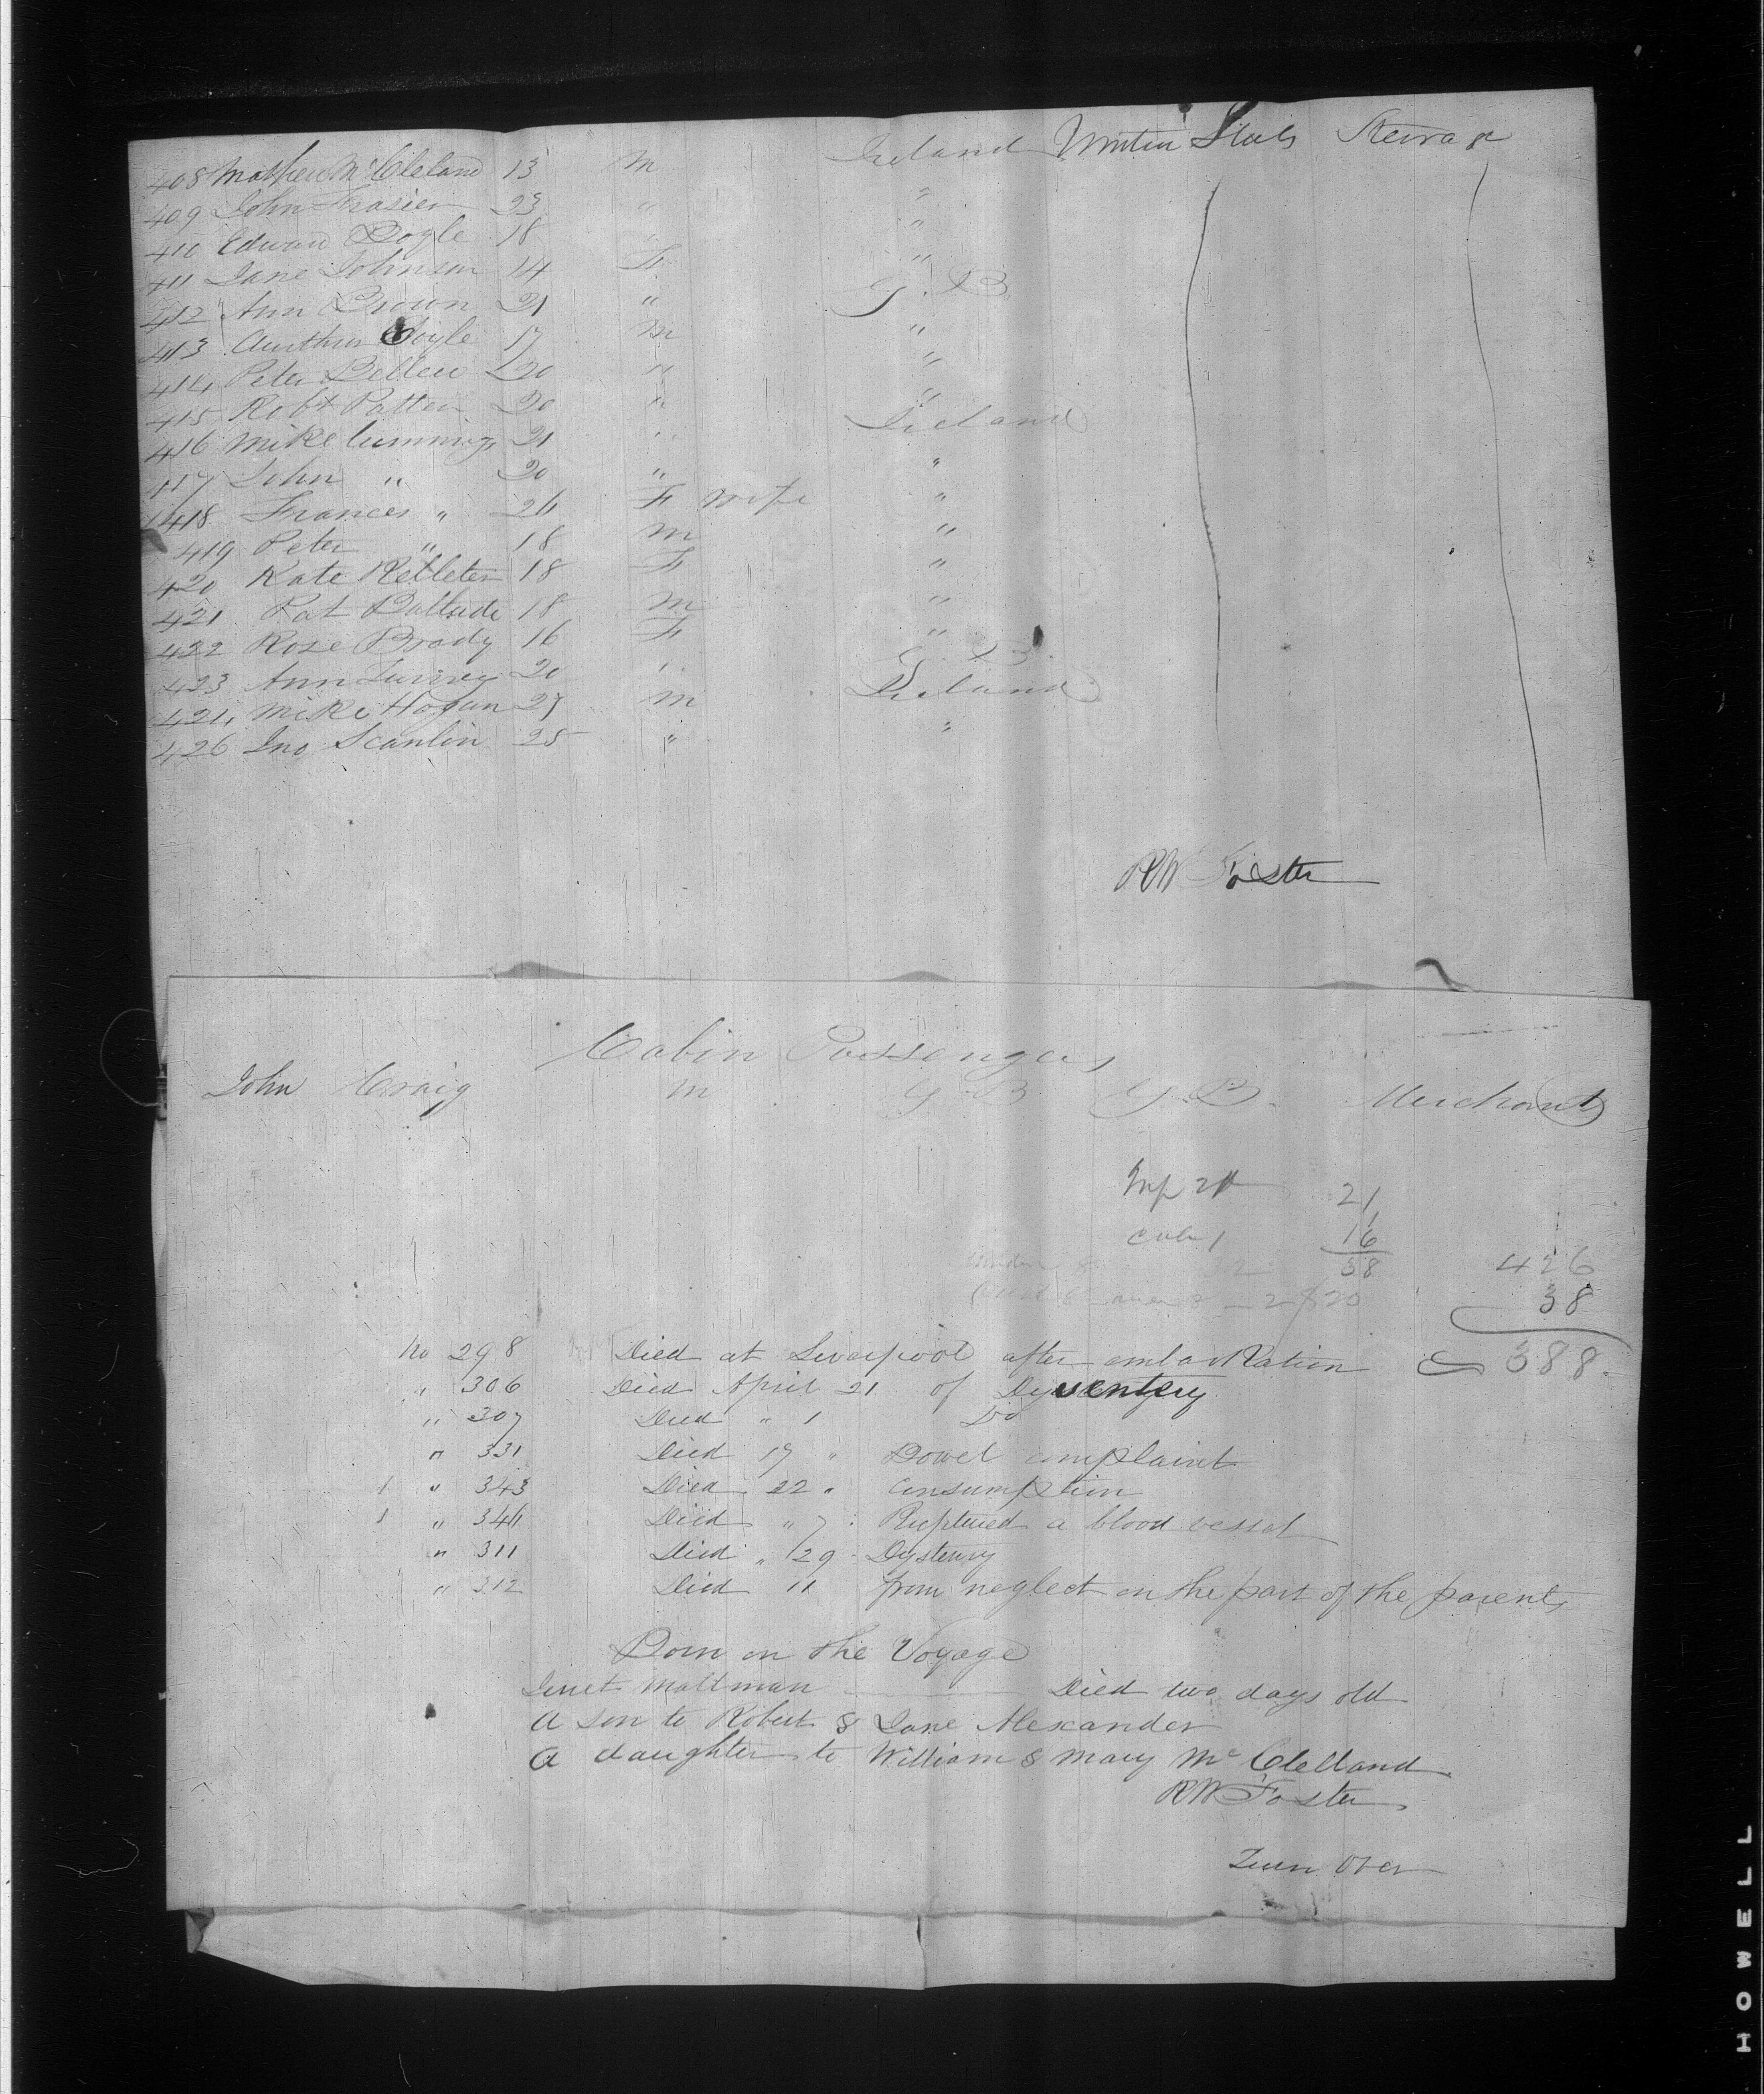 408 Mathew McCleland 13 m Ireland United States Steirage
409 John Frasier 23 " "
410 Edward Boyle 18 " "
411 Jane Johnson 14 F "
412 Ann Brown 21 " G. B.
413 Aurthur Boyle 17 m "
414 Peter Bellew 20 " "
415 Robt Patten 20 " "
416 Mike Cummings 21 " Ireland
417 John " 20 " "
418 Frances " 24 F wife "
419 Peter " 18 m "
420 Kate Kelleter 18 F "
421 Pat 18 m "
422 Rose Brady 16 F "
423 Ann 20 " G. B.
424 Mike Hogan 27 m Ireland
426 Jno Scanlin 25 " "
RW Foster
Cabin Passengers
John Craig m G. B. G. B. Merchant
21
cab 1 16
38 426
38
No 298 Died at Liverpool after embarkation 388
" 306 Died April 21 of Dysentery
" 307 Died " 1 Do
" 331 Died 17 " Bowel complaint
1 " 343 Died 22 " Consumption
1 " 344 Died " 7 Ruptured a blood vessel
" 311 Died " 29 Dystenry
" 312 Died 11 from neglect on the part of the parents
Born on the Voyage
Jenet Maltman Died two days old
A son to Robert & Jane Alexander
A daughter to William & Mary McClelland
RW Foster
Turn Over
HOWELL